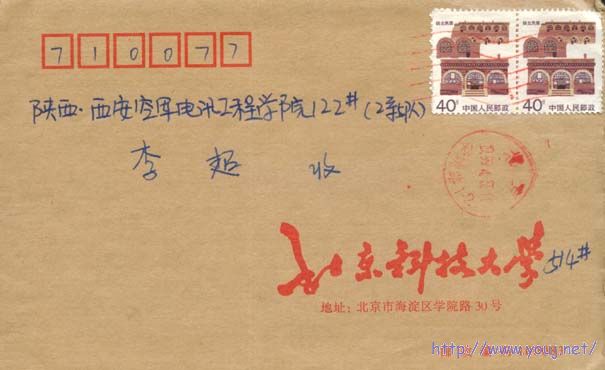 陕北民居 陕北民居
40分 中国人民邮政 40分 中国人民邮政
710077
陕西·西安空军电讯工程学院122#
李超 收
北京科技大学 514#
地址:北京市海淀区学院路30号
http://www.youj.net/